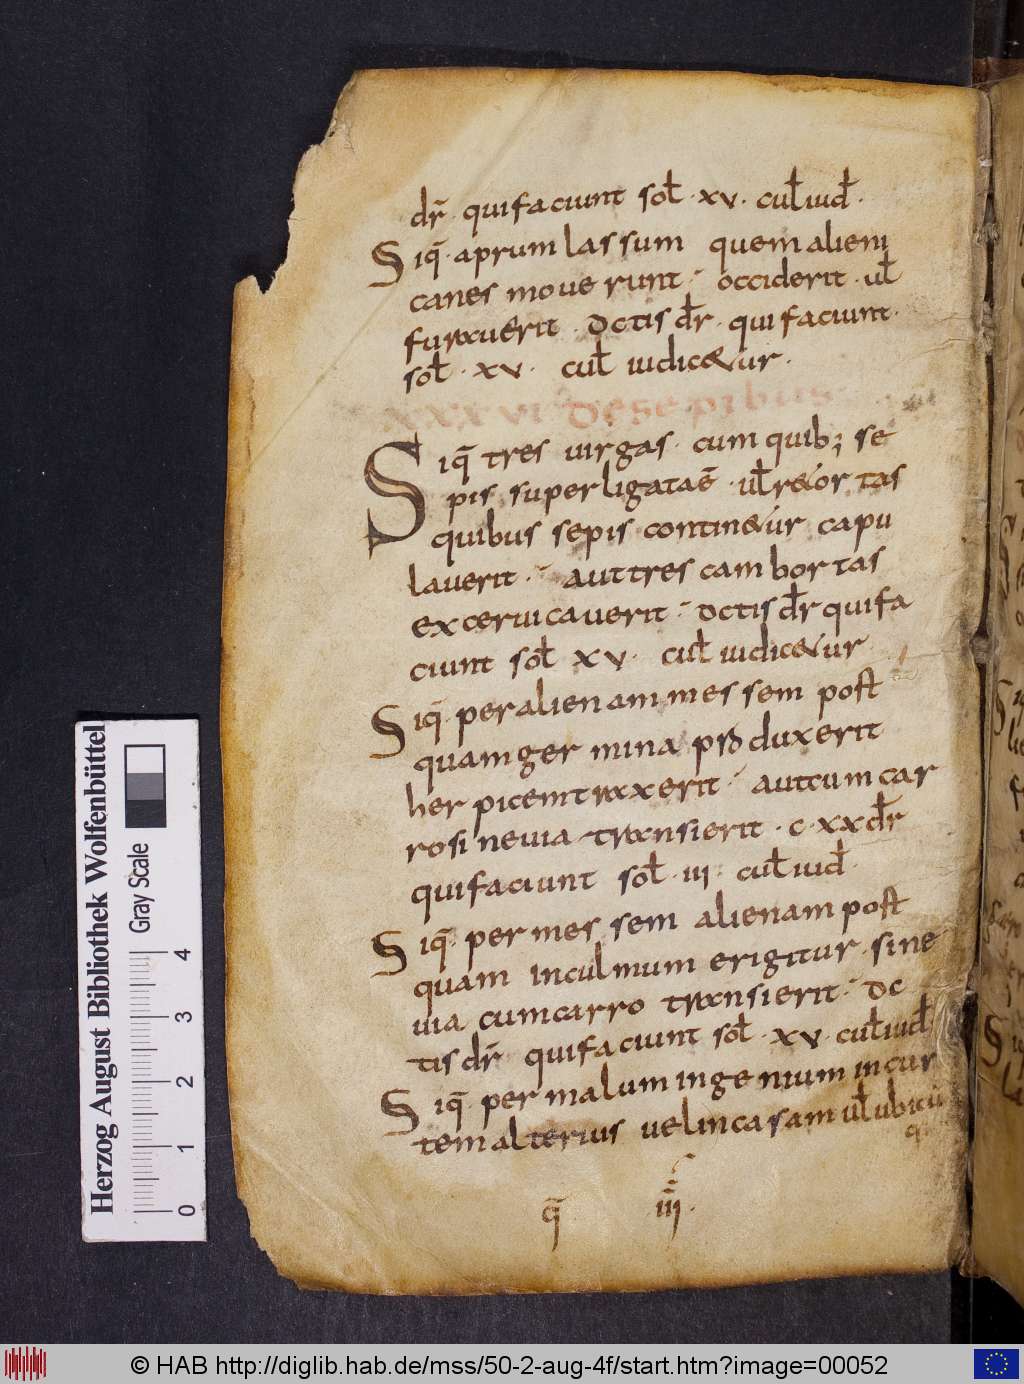 dr̄. qui faciunt sol̄. xv. cul̄ iud̄.
Siq̄. aprum lassum quem alieni
canes mouerunt. occiderit. ul̄
furauerit. dctis dr̄. qui faciunt.
sol̄. xv. cul̄ iudicetur.
xxxvi de sepibus
Siq̄ tres uirgas. cum quib; se
pis superligatae. ul̄ retortas
quibus sepis continetur capu
lauerit. aut tres cambortas
excerui cauerit. dctis dr̄ qui fa
ciunt sol̄ xv. cul̄ iudicetur
Siq̄. per alienam messem post
quam germina produxerit
herpicem traxerit. aut cum car
ro sine uia transierit. cxx dr̄
qui faciunt sol̄. iii. cul̄ iud̄.
Siq̄. per messem alienam post
quam in culmum erigitur. sine
uia cum carro transierit. dc
tis dr̄ qui faciunt sol̄. xv. cul̄ iud̄
Siq̄ per malum ingenium in cur
tem alterius uel in casam ul̄ ubicū
q̄ iiii.
Herzog August Bibliothek Wolfenbüttel
Gray Scale
0 1 2 3 4
© HAB http://diglib.hab.de/mss/50-2-aug-4f/start.htm?image=00052